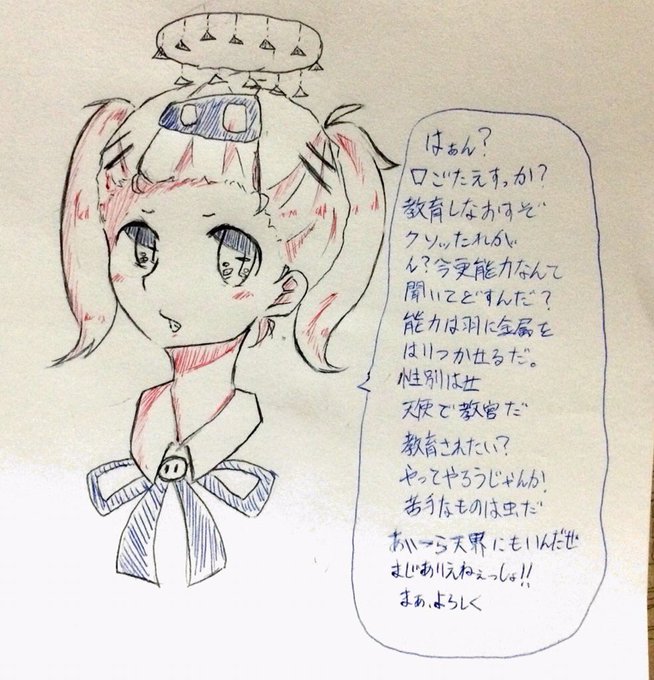 はぁん?
口ごたえすっか?
教育しなおすぞ
クソッたれがぁ
ん?今更能力なんて
聞いてどすんだ?
能力は羽に金属を
はりつかせるだ。
性別は女
天使で教官だ
教育されたい?
やってやろうじゃんか!
苦手なものは虫だ
あいつら天界にもいんだぜ
まじありえねぇっしょ!!
まぁ、よろしく